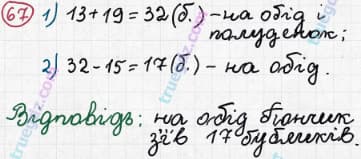 67 1) 13+19=32(б.) – на обід і
полуденок;
2) 32-15=17(б.) – на обід.
Відповідь: на обід біончик
з'їв 17 бубликів.